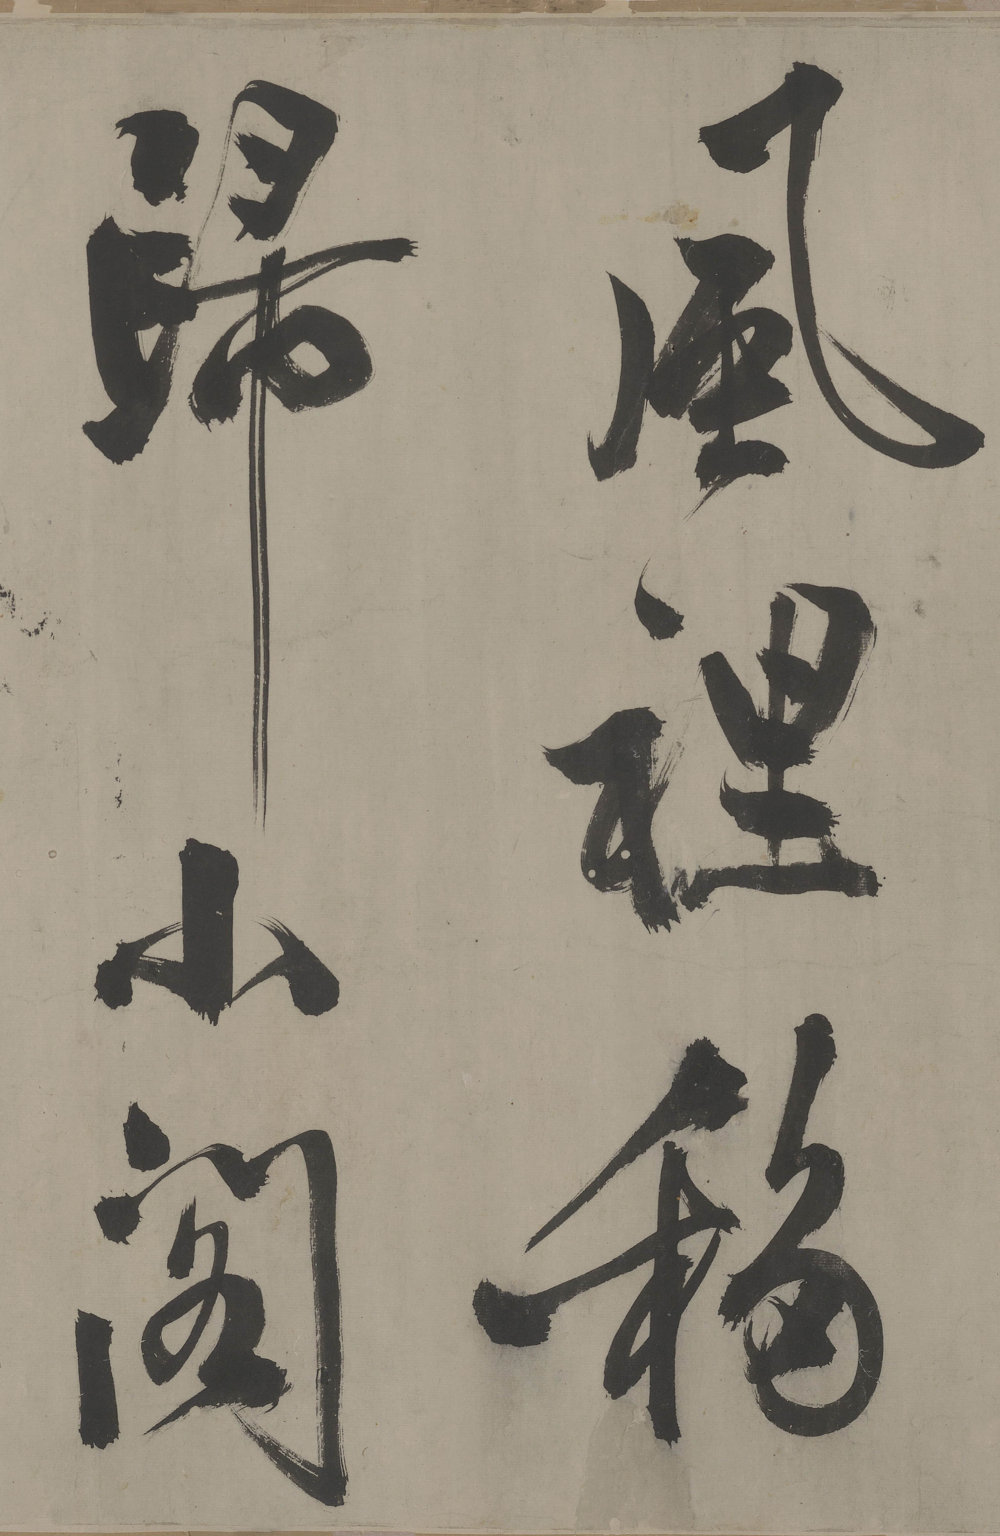 風裡移
歸小閣